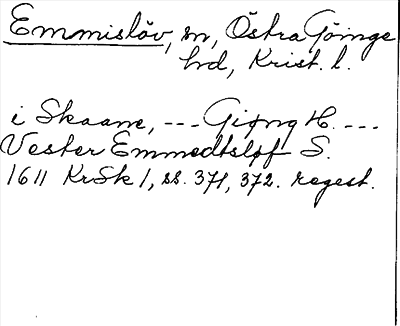 Emmislöv, sn, Östra Göinge
hrd, Krist. l.
i Skaane, --- Giøng H. ---
Vester Emmedtsløf S.
1611 KrSk 1, ss. 371, 372. regest.